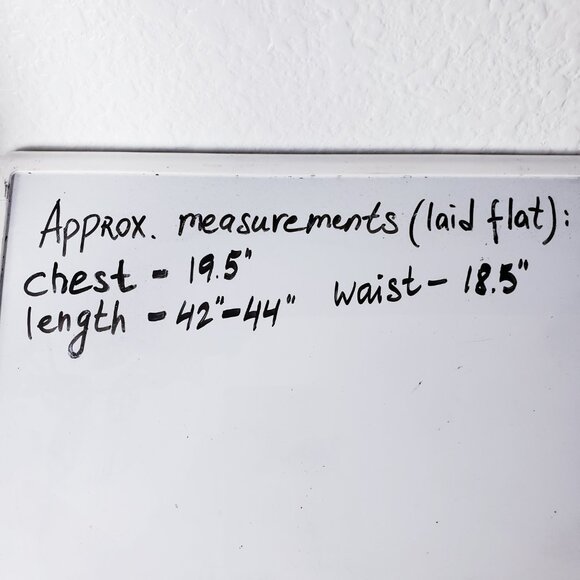 Approx. measurements (laid flat):
chest - 19.5" waist - 18.5"
length - 42"-44"